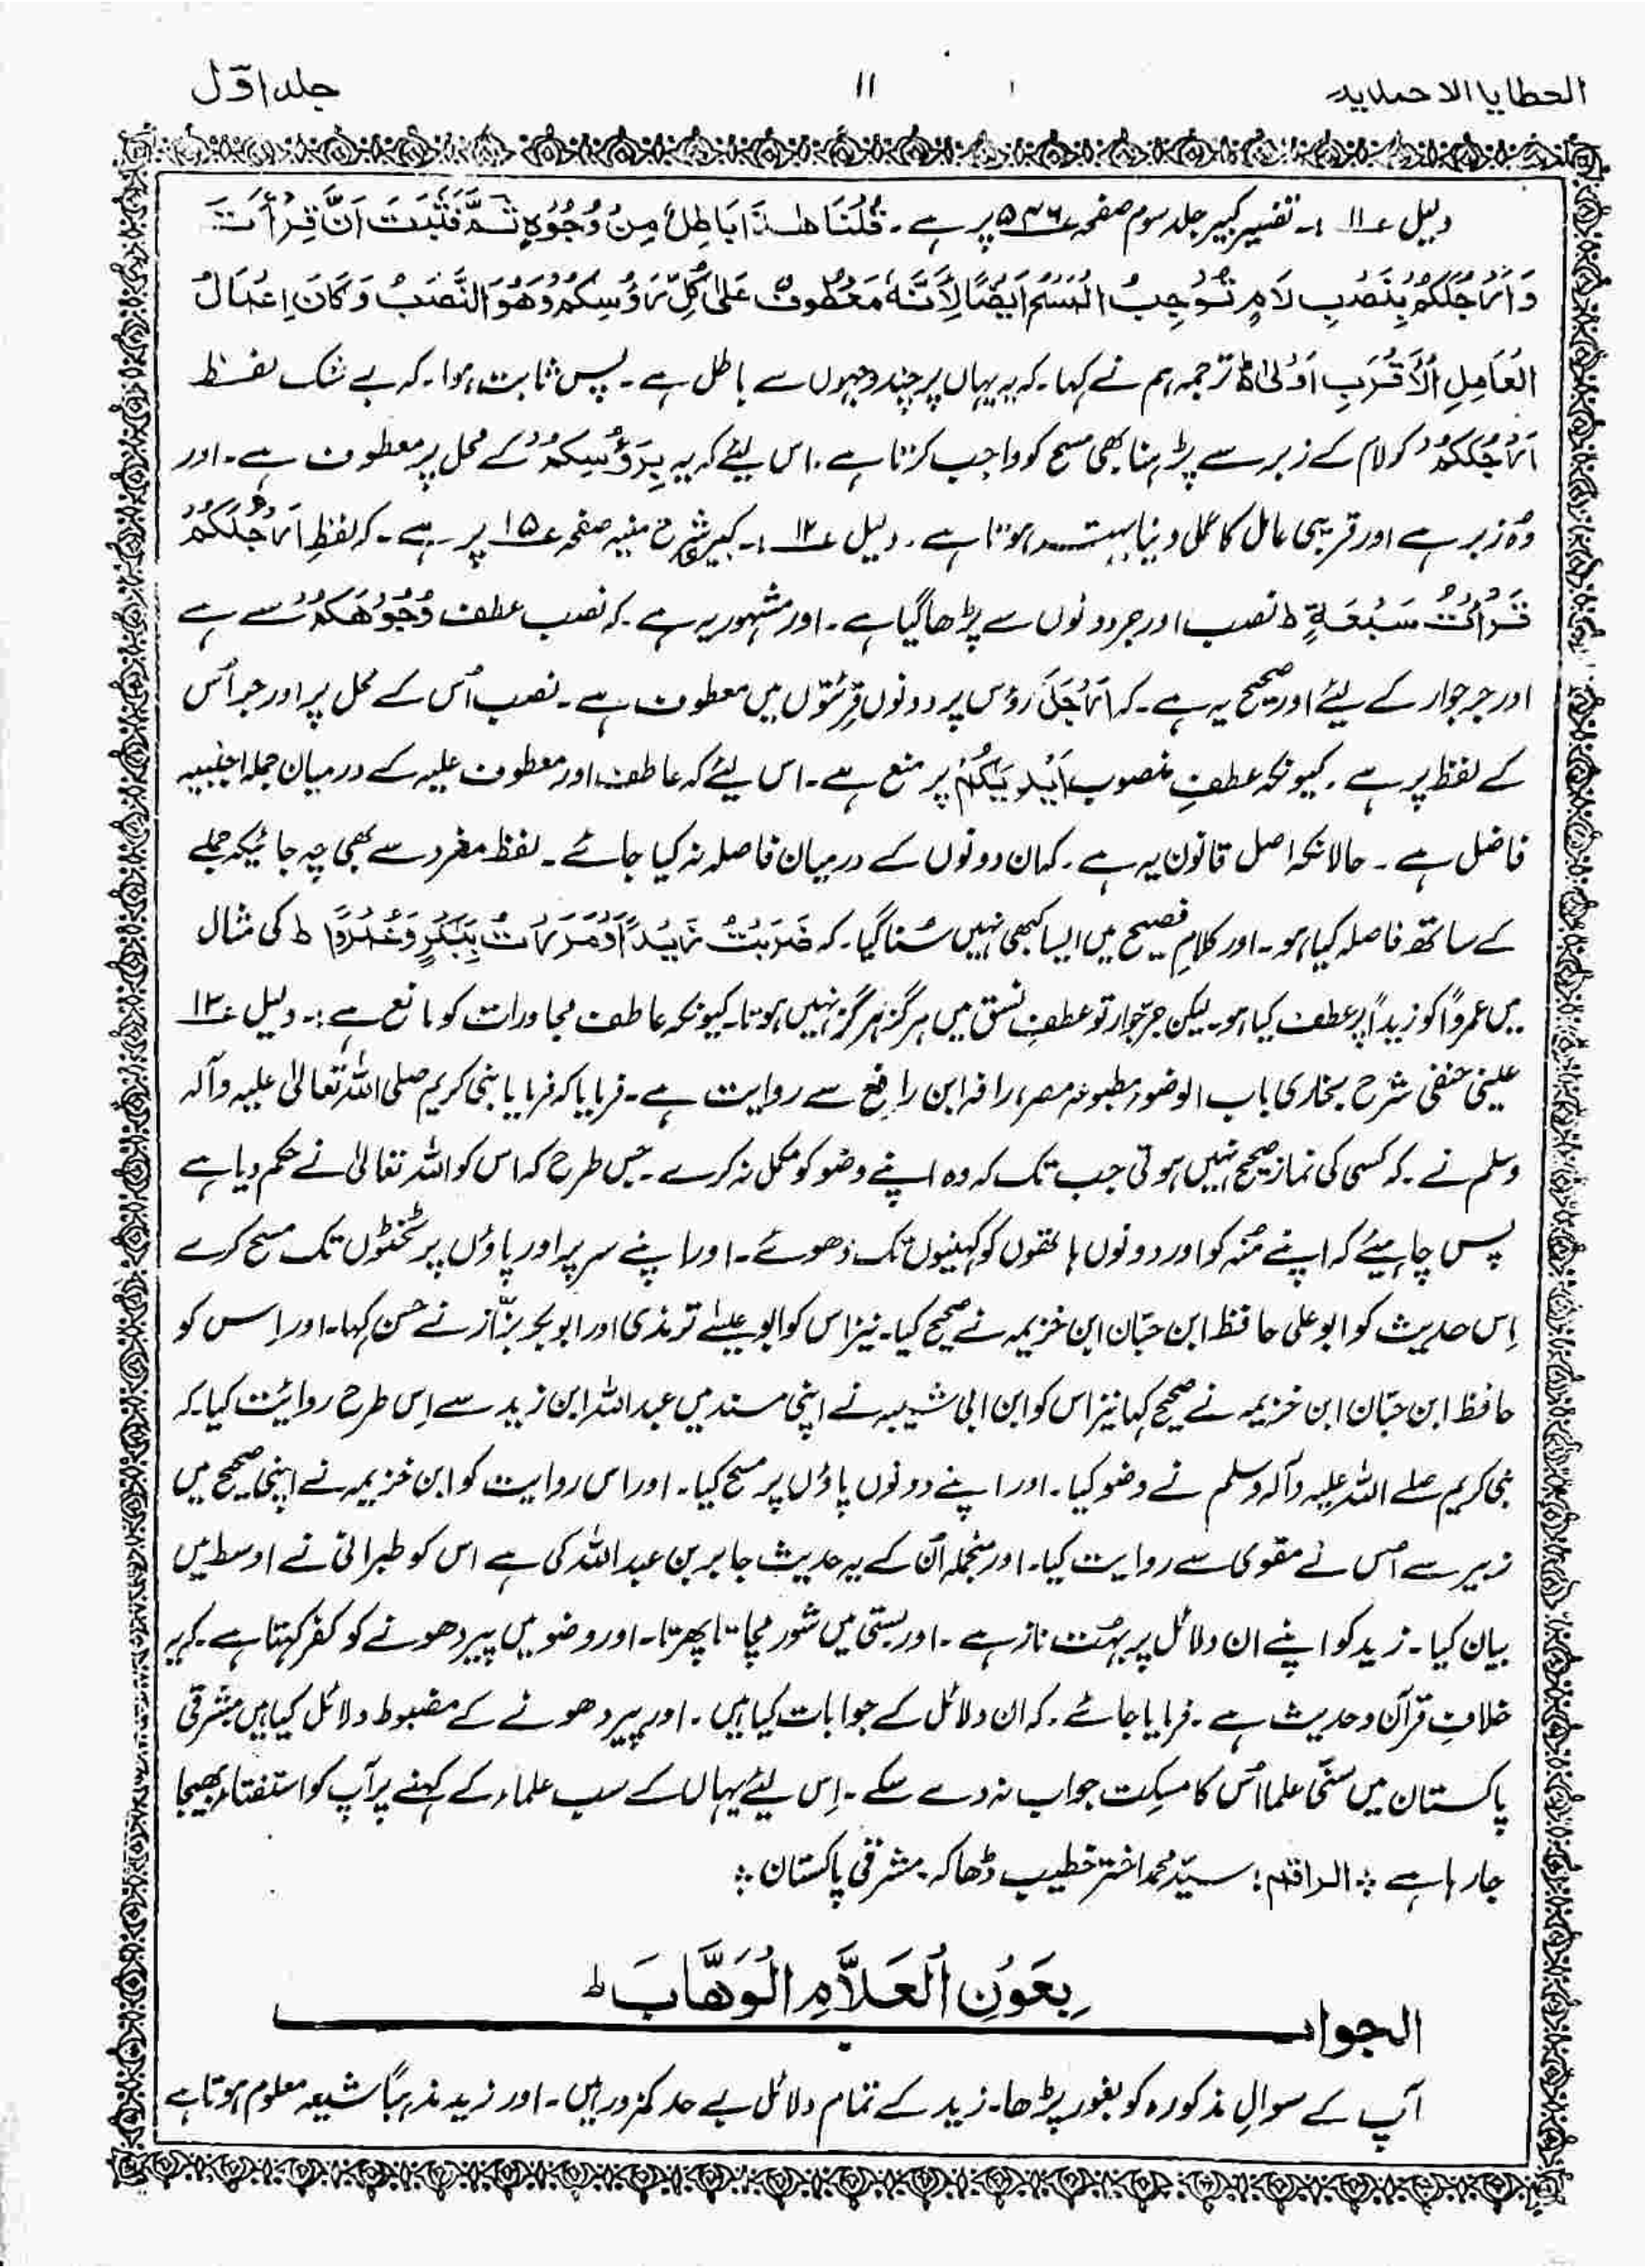 العطایا الاحمدیہ
۱۱
جلد اوّل
دلیل ۱۱؎ :۔ تفسیر کبیر جلد سوم صفحہ ۵۳۶؎ پر ہے ۔ قُلْنَا هٰذَا بَاطِلٌ مِنْ وُجُوْہٍ ثَمَّ فَثَبَتَ اَنَّ قِرْأَتَ
وَاَرْجُلَكُمْ بِنَصْبِ لَامٍ تُوْجِبُ الْمَسْحَ اَيْضًا لِاَنَّهٗ مَعْطُوْفٌ عَلٰى كُلِّ رَؤُسِكُمْ وَهُوَ النَّصَبُ وَكَانَ اِعْمَالُ
الْعَامِلِ الْاَقْرَبِ اَوْلٰى ط ترجمہ ہم نے کہا ۔ کہ یہ یہاں پر چند وجہوں سے باطل ہے ۔ پس ثابت ہوا ۔ کہ بے شک لفظ
اَرْجُلَكُمْ کو لام کے زبر سے پڑہنا بھی مسح کو واجب کرتا ہے ۔ اس لیئے کہ یہ بِرَؤُسِكُمْ کے محل پر معطوف ہے ۔ اور
وہ زبر ہے اور قریبی عامل کا عمل دینا بہت ہوتا ہے ۔ دلیل ۱۲؎ :۔ کبیر شرح منیہ صفحہ ۱۵؎ پر ہے ۔ کہ لفظِ اَرْجُلَكُمْ
قَرْأَتْ سَبْعَةٍ ط نصب اور جر دونوں سے پڑھا گیا ہے ۔ اور مشہور یہ ہے ۔ کہ نصب عطف وُجُوْهَكُمْ سے ہے
اور جر جوار کے لیئے اور صحیح یہ ہے ۔ کہ اَرْجُلَ رؤس پر دونوں قرئتوں میں معطوف ہے ۔ نصب اُس کے محل پر اور جر اُس
کے لفظ پر ہے ۔ کیونکہ عطفِ منصوب اَيْدِيَكُمْ پر منع ہے ۔ اس لیئے کہ عاطف اور معطوف علیہ کے درمیان جملہ اجنبیہ
فاضل ہے ۔ حالانکہ اصل قانون یہ ہے ۔ کہ ان دونوں کے درمیان فاصلہ نہ کیا جائے ۔ لفظ مفرد سے بھی چہ جائیکہ جملے
کے ساتھ فاصلہ کیا ہو ۔ اور کلامِ فصیح میں ایسا کبھی نہیں سُنا گیا ۔ کہ ضَرَبْتُ زَيْدًا وَمَرَرْتُ بِبَكْرٍ وَعَمْرًوا ط کی مثال
میں عمرواً کو زیداً پر عطف کیا ہو ۔ لیکن جرِّ جوار تو عطفِ نسق میں ہرگز ہرگز نہیں ہوتا ۔ کیونکہ عاطف مجاورات کو مانع ہے :۔ دلیل ۱۳؎
عینی حنفی شرح بخاری باب الوضوء مطبوعہ مصر، رافہ ابن رافع سے روایت ہے ۔ فرمایا کہ فرمایا نبی کریم صلی اللہ تعالیٰ علیہ وآلہ
وسلم نے ۔ کہ کسی کی نماز صحیح نہیں ہوتی جب تک کہ وہ اپنے وضو کو مکمل نہ کرے ۔ جس طرح کہ اس کو اللہ تعالیٰ نے حکم دیا ہے
پس چاہیئے کہ اپنے مُنہ کو اور دونوں ہاتھوں کو کہنیوں تک دھوئے ۔ اور اپنے سر پر اور پاؤں پر ٹخنوں تک مسح کرے
اِس حدیث کو ابو علی حافظ ابن حبّان ابن خزیمہ نے صحیح کیا ۔ نیز اس کو ابو عیسٰے ترمذی اور ابوبکر بزّاز نے حسن کہا ۔ اور اس کو
حافظ ابن حبّان ابن خزیمہ نے صحیح کہا نیز اس کو ابن ابی شیبہ نے اپنی مسند میں عبداللہ ابن زید سے اِس طرح روائیت کیا کہ
نبی کریم صلے اللہ علیہ وآلہ وسلم نے وضو کیا ۔ اور اپنے دونوں پاؤں پر مسح کیا ۔ اور اس روایت کو ابن خزیمہ نے اپنی صحیح میں
زبیر سے اُس نے مقوی سے روایت کیا ۔ اور منجملہ اُن کے یہ حدیث جابر بن عبداللہ کی ہے اس کو طبرانی نے اوسط میں
بیان کیا ۔ زید کو اپنے ان دلائل پر بہُت ناز ہے ۔ اور بستی میں شور مچاتا پھرتا ۔ اور وضو میں پیر دھونے کو کفر کہتا ہے ۔ کہ یہ
خلافِ قرآن و حدیث ہے ۔ فرمایا جائے ۔ کہ ان دلائل کے جوابات کیا ہیں ۔ اور پیر دھونے کے مضبوط دلائل کیا ہیں مشرقی
پاکستان میں سنّی علما اُس کا مسکِت جواب نہ دے سکے ۔ اِس لیئے یہاں کے سب علماء کے کہنے پر آپ کو استفتاء بھیجا
جا رہا ہے ؞ الراقم : سیّد محمد اختر خطیب ڈھاکہ ۔ مشرقی پاکستان ؞
بِعَوْنِ الْعَلَّامِ الْوَهَّابَ ط
الجواب
آپ کے سوالِ مذکورہ کو بغور پڑھا ۔ زید کے تمام دلائل بے حد کمزور ہیں ۔ اور زید مذہباً شیعہ معلوم ہوتا ہے